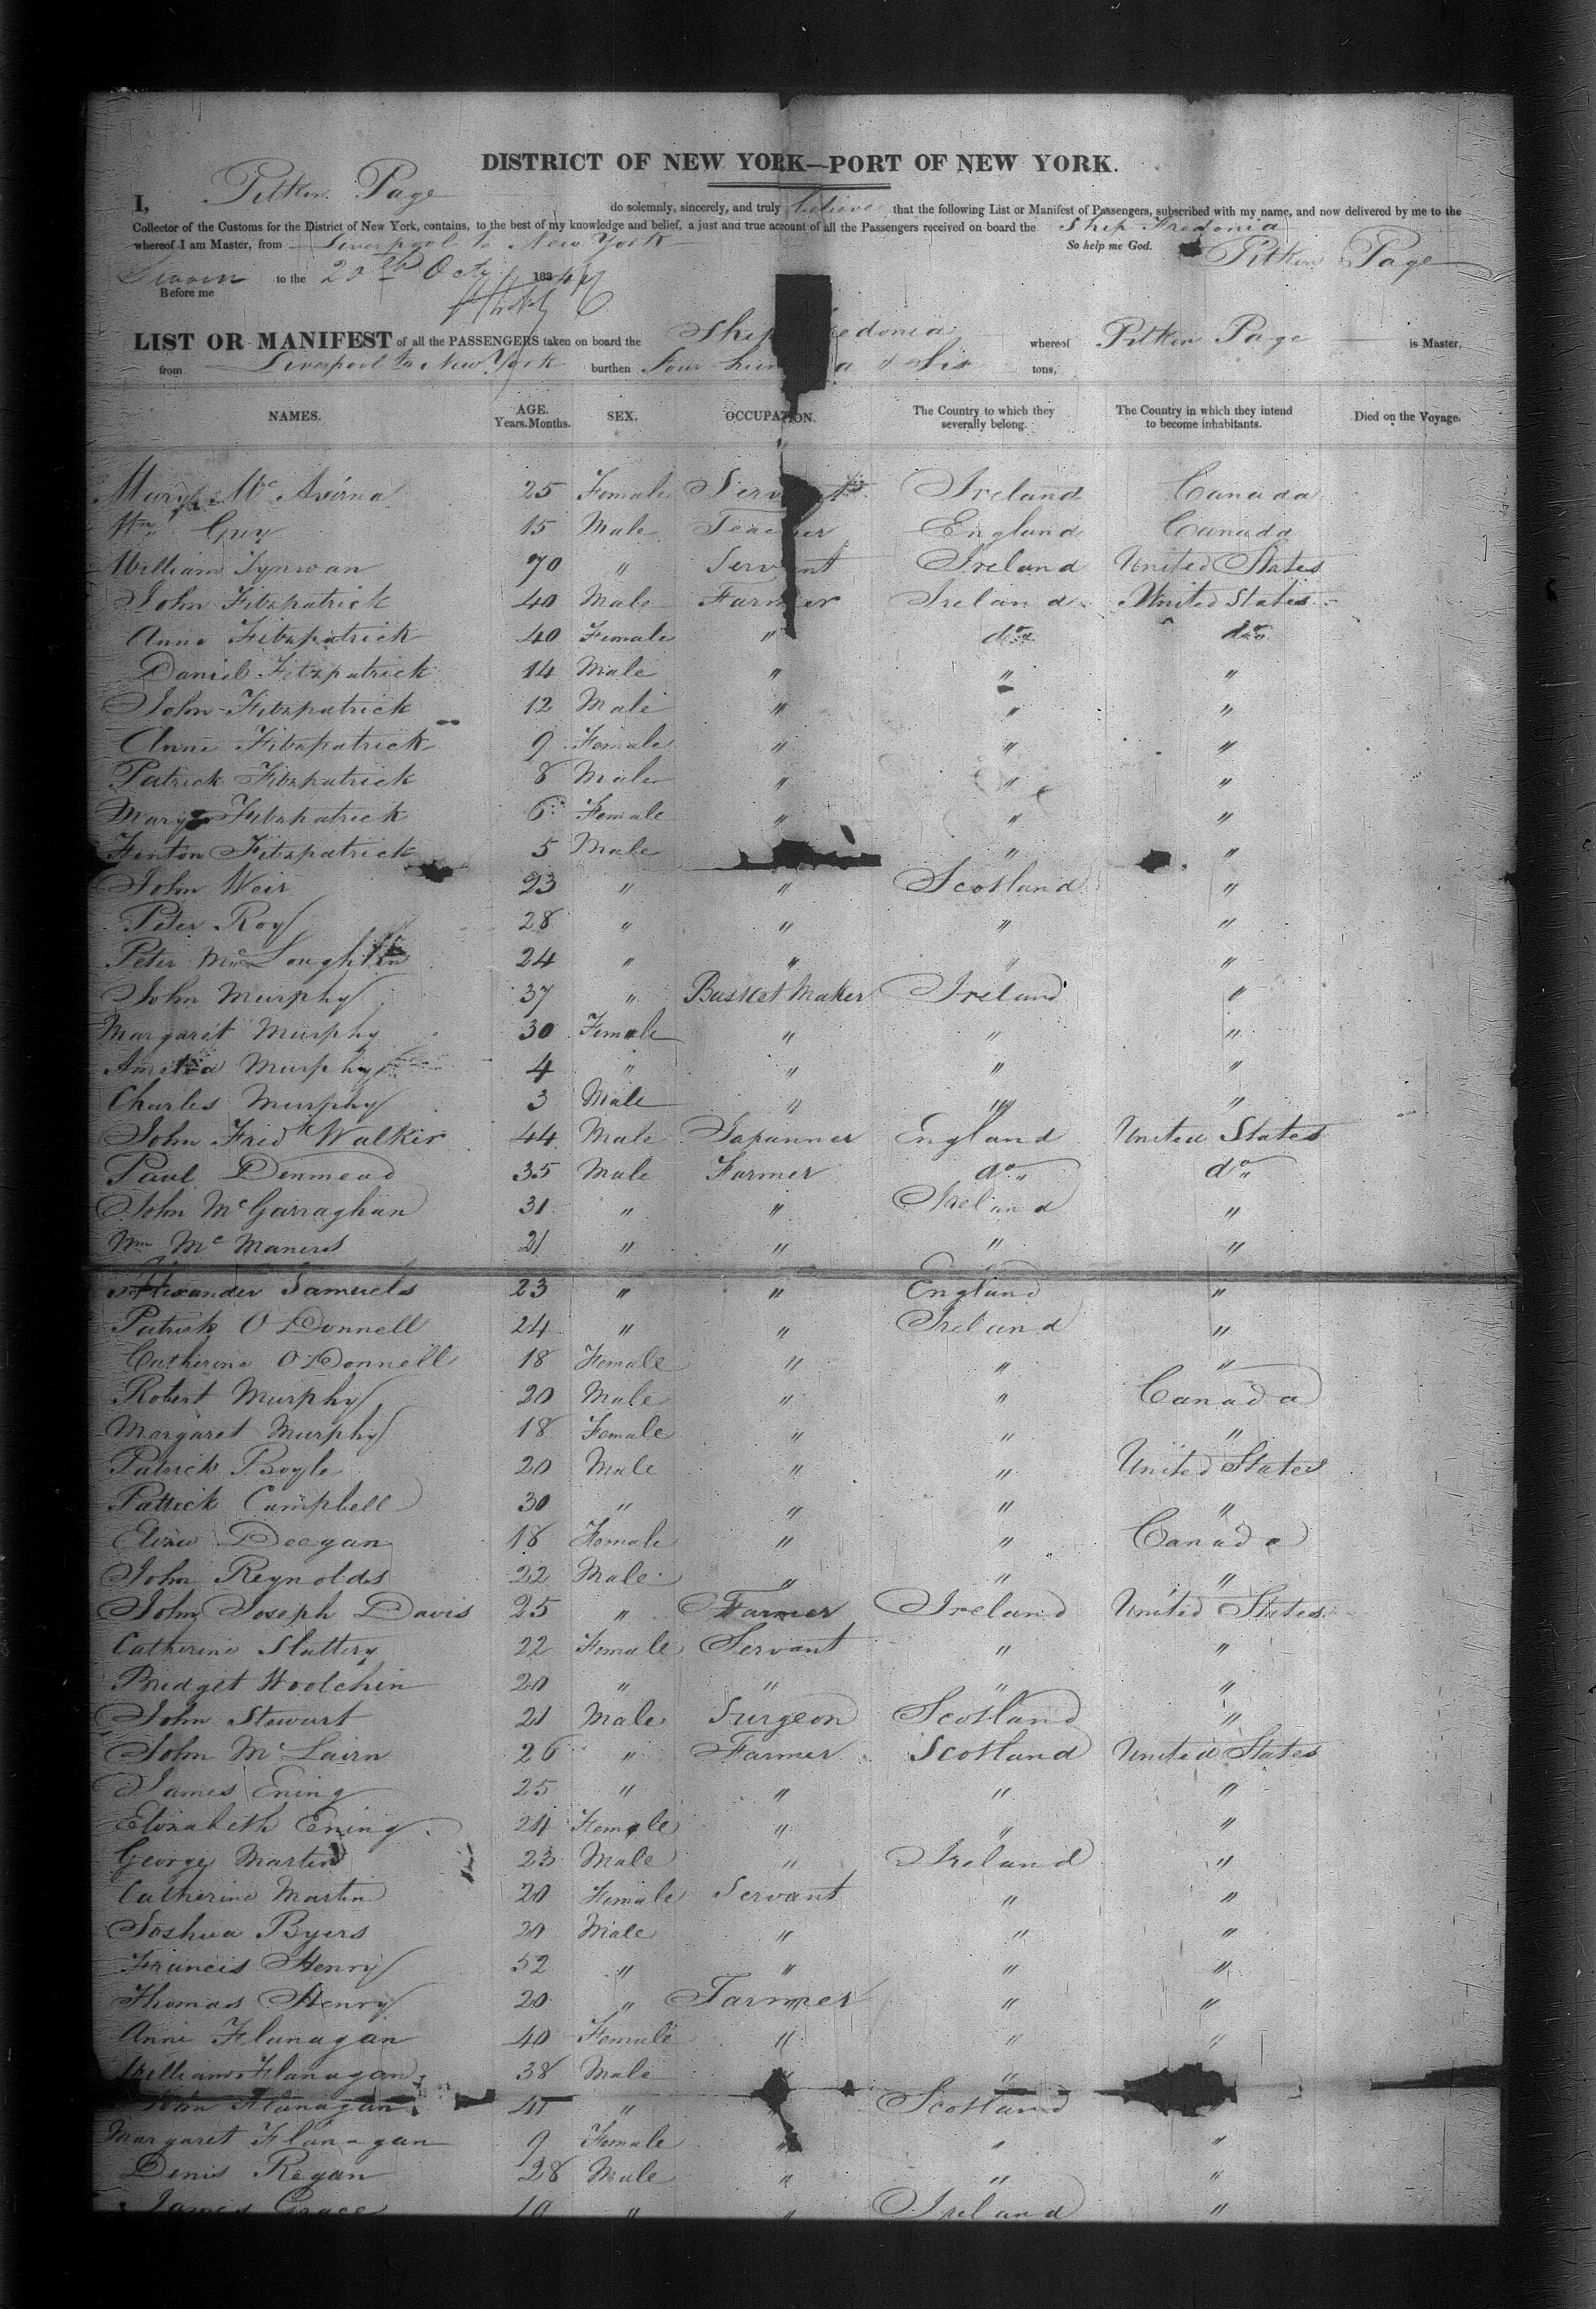 DISTRICT OF NEW YORK—PORT OF NEW YORK.
I, Pitkin Page do solemnly, sincerely, and truly believe that the following List or Manifest of Passengers, subscribed with my name, and now delivered by me to the
Collector of the Customs for the District of New York, contains, to the best of my knowledge and belief, a just and true account of all the Passengers received on board the Ship Fredonia
whereof I am Master, from Liverpool to New York So help me God. Pitkin Page
Sworn to the 20th Octr 183
Before me
LIST OR MANIFEST of all the PASSENGERS taken on board the Ship edonia whereof Pitkin Page is Master,
from Liverpool to New York burthen Four hun & Six tons,
NAMES. AGE. Years. Months. SEX. OCCUPATION. The Country to which they severally belong. The Country in which they intend to become inhabitants. Died on the Voyage.
Mary Mc 25 Female Servant Ireland Canada
Wm Guy 15 Male Teacher England Canada
William Tynwan 70 " Servant Ireland United States
John Fitzpatrick 40 Male Farmer Ireland United States
Anne Fitzpatrick 40 Female " do do
Daniel Fitzpatrick 14 Male " " "
John Fitzpatrick 12 Male " " "
Anne Fitzpatrick 9 Female " " "
Patrick Fitzpatrick 8 Male " " "
Mary Fitzpatrick 6 Female " " "
Fenton Fitzpatrick 5 Male " "
John Weir 23 " " Scotland "
Peter Roy 28 " " " "
Peter McLoughlin 24 " " " "
John Murphy 37 " Basket Maker Ireland "
Margaret Murphy 30 Female " " "
Murphy 4 " " " "
Charles Murphy 3 Male " " "
John Fredk Walker 44 Male Japanner England United States
Paul Denmead 35 Male Farmer do do
John McGarraghan 31 " " Ireland "
Wm Mc Maners 21 " " " "
Alexander Samuels 23 " " England "
Patrick O Donnell 24 " " Ireland "
Catherine O Donnell 18 Female " " "
Robert Murphy 20 Male " " Canada
Margaret Murphy 18 Female " " "
Patrick Boyle 20 Male " " United States
Patrick Campbell 30 " " " "
Eliza Deegan 18 Female " " Canada
John Reynolds 22 Male " " "
John Joseph Davis 25 " Farmer Ireland United States
Catherine Slattery 22 Female Servant " "
Bridget Woolchin 20 " " " "
John Stewart 21 Male Surgeon Scotland "
John McLairn 26 " Farmer Scotland United States
James Ening 25 " " " "
Elizabeth Ening 24 Female " " "
George Martin 23 Male " Ireland "
Catherine Martin 20 Female Servant " "
Joshua Byers 20 Male " " "
Francis Henry 52 " " " "
Thomas Henry 20 " Farmer " "
Anne Flanagan 40 Female " " "
William Flanagan 38 Male "
John Flanagan " Scotland
Margaret Flanagan 9 Female " " "
Denis Regan 28 Male " " "
James Grace " " Ireland "